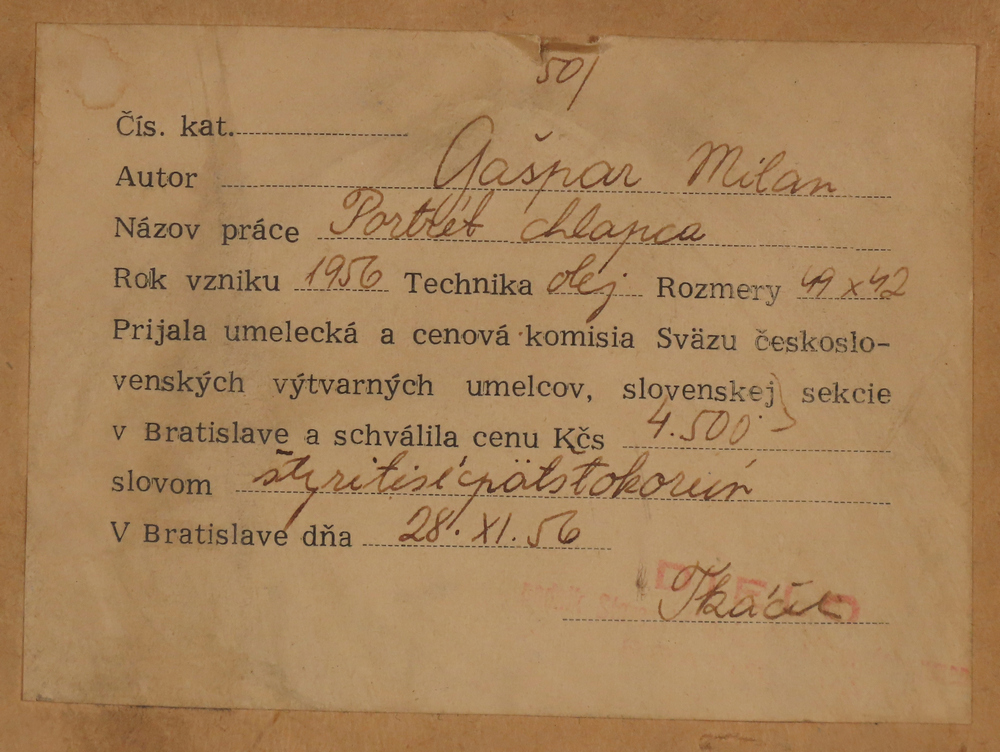 50/
Čís. kat.
Autor Gašpar Milan
Názov práce Portrét chlapca
Rok vzniku 1956 Technika olej Rozmery 49 x 42
Prijala umelecká a cenová komisia Sväzu českoslo-
venských výtvarných umelcov, slovenskej sekcie
v Bratislave a schválila cenu Kčs 4.500
slovom štyritisícpäťstokorún
V Bratislave dňa 28. XI. 56